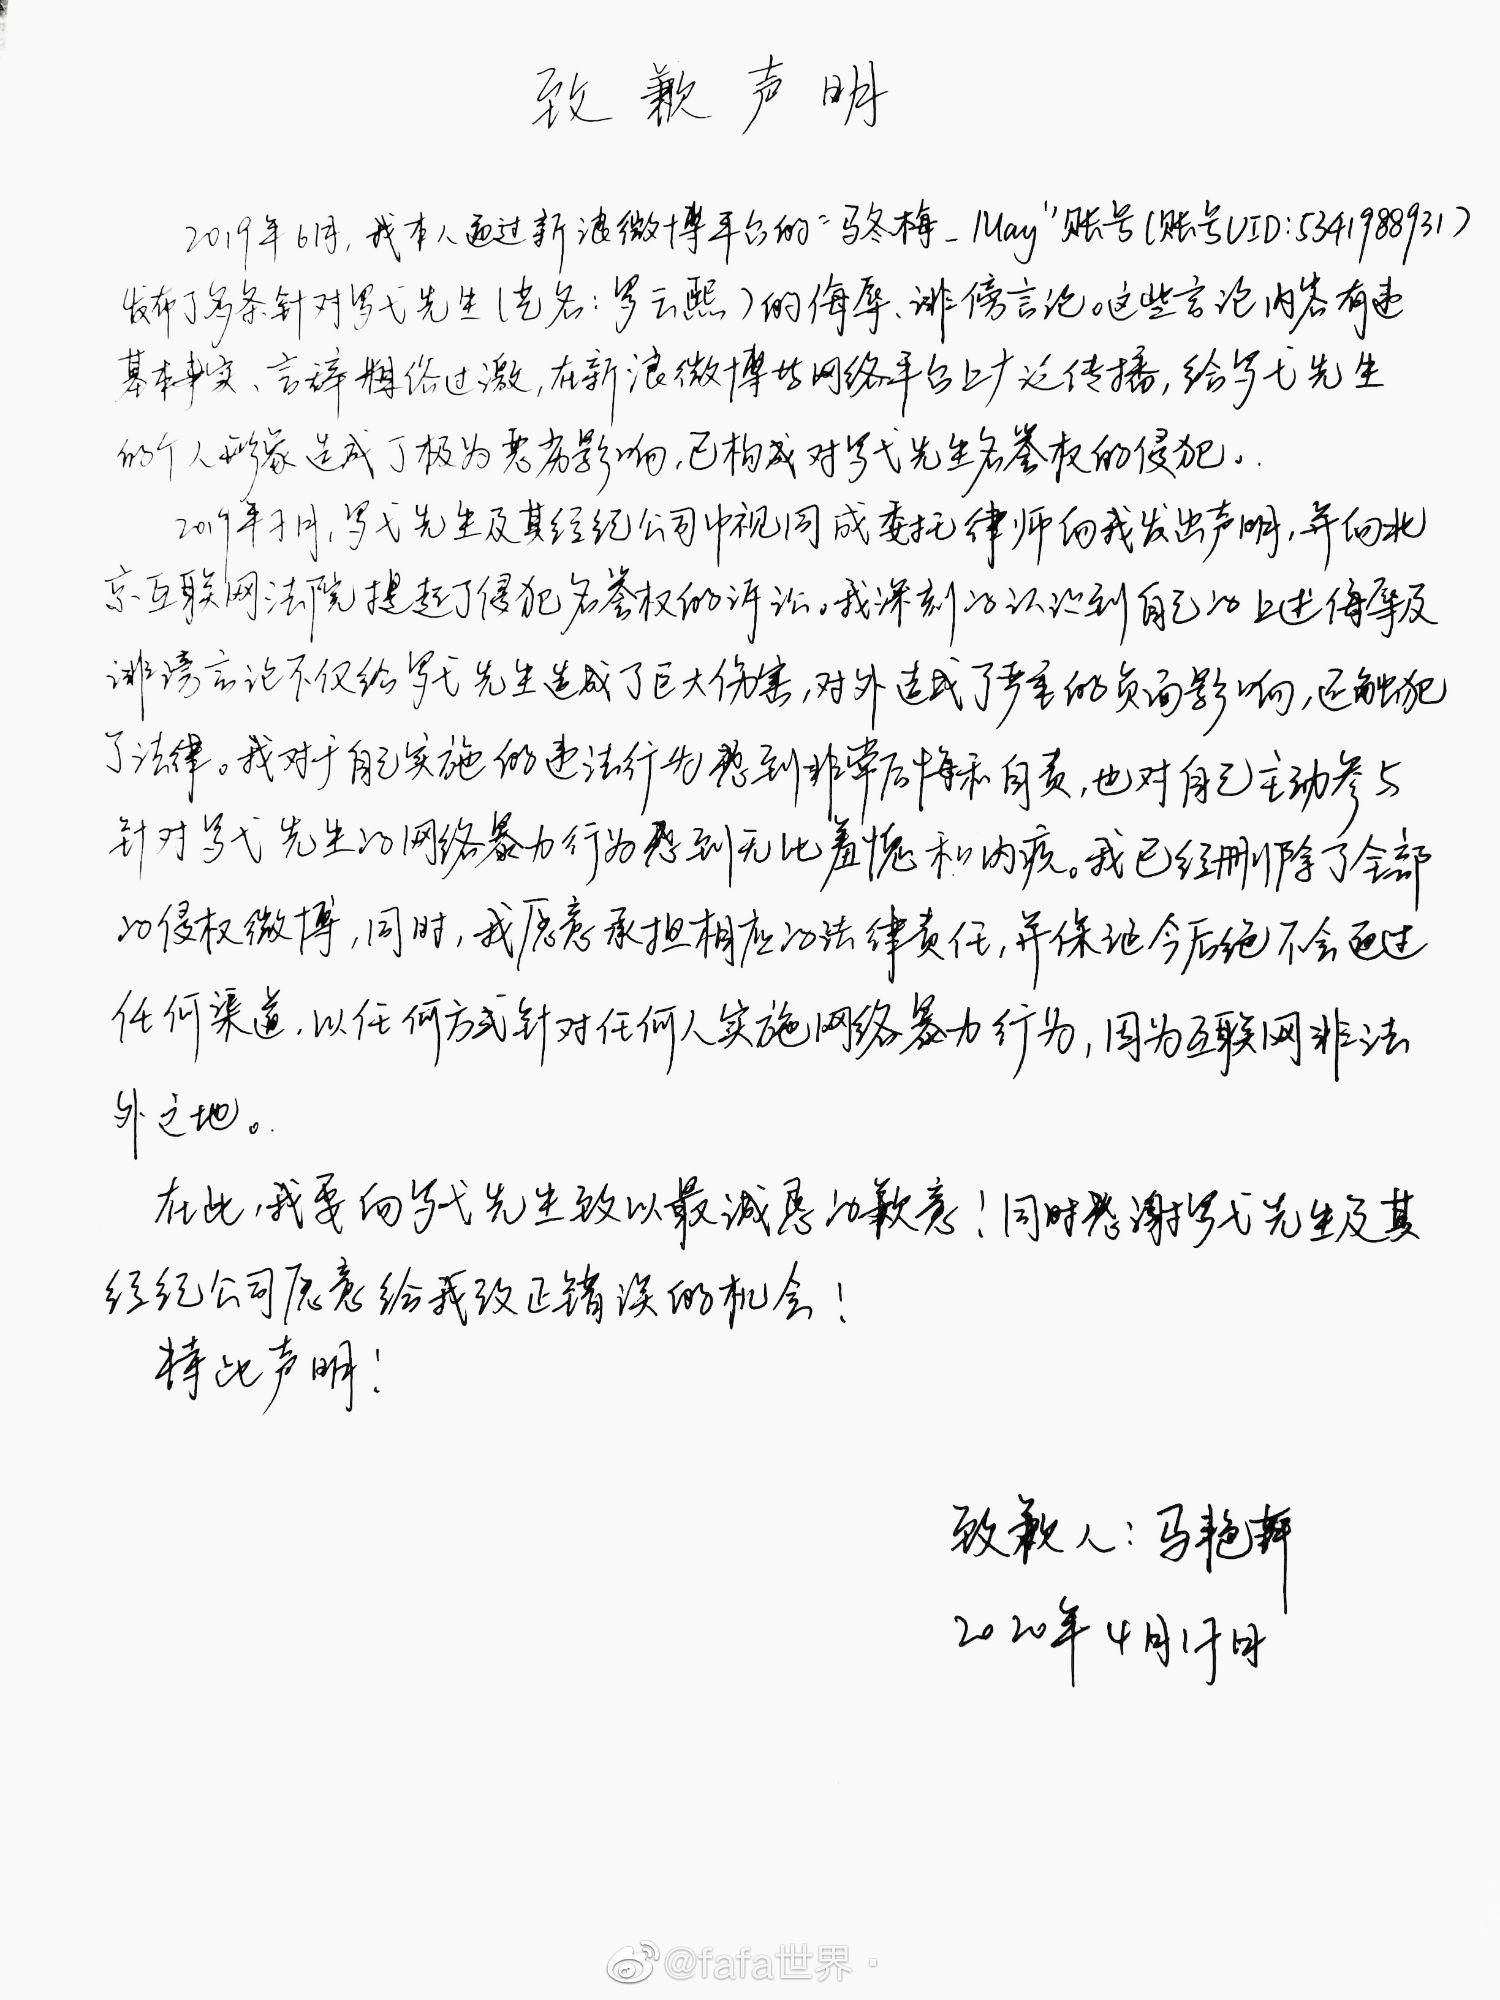 致歉声明
2019年6月,我本人通过新浪微博平台的“马冬梅_May”账号(账号UID:5341988931)
发布了多条针对罗弋先生(艺名:罗云熙)的侮辱、诽傍言论。这些言论内容有违
基本事实、言辞粗俗过激,在新浪微博等网络平台上广泛传播,给罗弋先生
的个人形象造成了极为恶劣影响,已构成对罗弋先生名誉权的侵犯。
2019年7月,罗弋先生及其经纪公司中视同成委托律师向我发出声明,并向北
京互联网法院提起了侵犯名誉权的诉讼。我深刻的认识到自己的上述侮辱及
诽谤言论不仅给罗弋先生造成了巨大伤害,对外造成了严重的负面影响,还触犯
了法律。我对于自己实施的违法行为感到非常后悔和自责,也对自己主动参与
针对罗弋先生的网络暴力行为感到无比羞愧和内疚。我已经删除了全部
的侵权微博,同时,我愿意承担相应的法律责任,并保证今后绝不会通过
任何渠道、以任何方式针对任何人实施网络暴力行为,因为互联网非法
外之地。
在此,我要向罗弋先生致以最诚恳的歉意!同时感谢罗弋先生及其
经纪公司愿意给我改正错误的机会!
特此声明!
致歉人:马艳
2020年4月17日
@fafa世界·